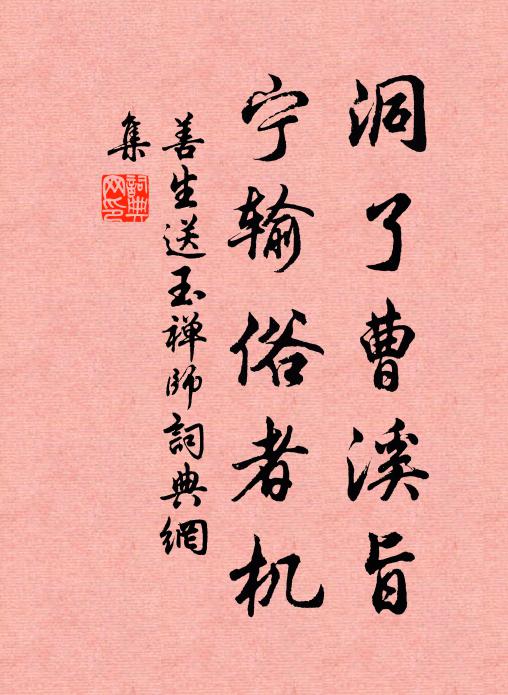 洞了曹溪旨
宁输俗者机
善生送玉禅师詞典網
集
詞典网印